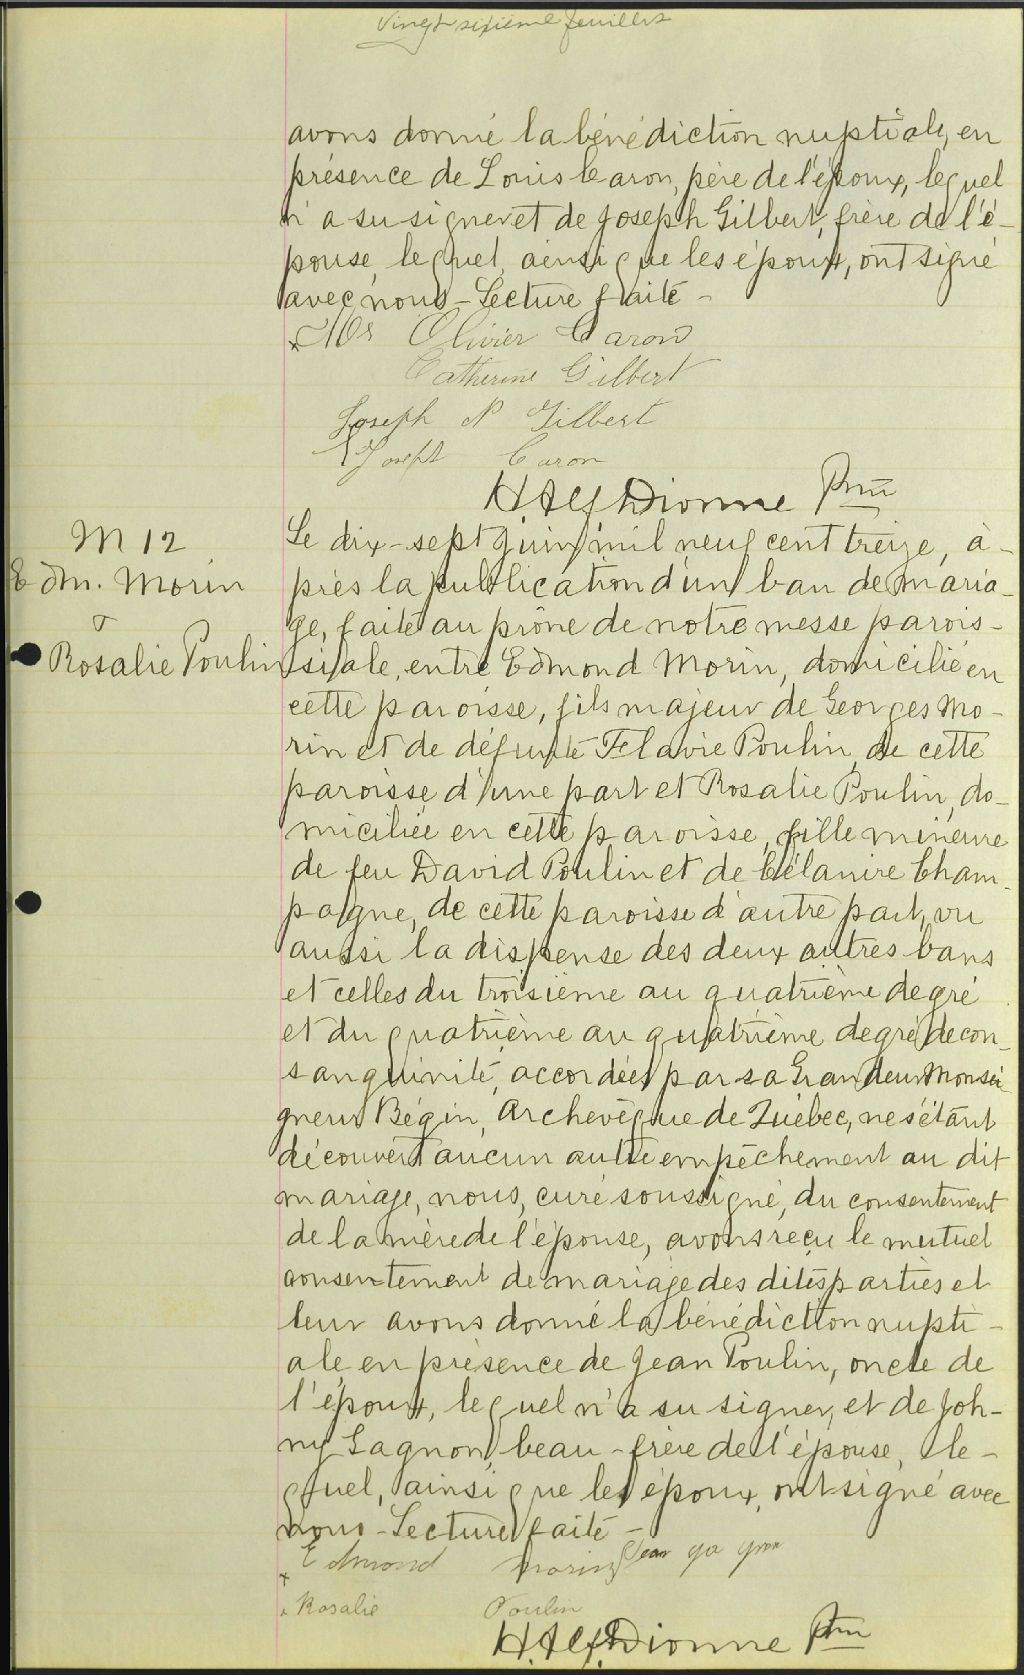 Vingt sixième feuillet
avons donné la bénédiction nuptiale, en
présence de Louis Caron, père de l'époux, lequel
n'a su signer et de Joseph Gilbert, frère de l'é-
pouse, lequel, ainsi que les époux, ont signé
avec nous - Lecture faite -
Olivier Caron
Catherine Gilbert
Joseph N Gilbert
Joseph Caron
H. Alf. Dionne Ptre
M 12
Edm. Morin
&
Rosalie Poulin
Le dix-sept Juin mil neuf cent treize, a-
près la publication d'un ban de maria-
ge, faite au prône de notre messe parois-
siale, entre Edmond Morin, domicilié en
cette paroisse, fils majeur de Georges Mo-
rin et de défunte Flavie Poulin, de cette
paroisse d'une part et Rosalie Poulin, do-
miciliée en cette paroisse, fille mineure
de feu David Poulin et de Célanire Cham-
pagne, de cette paroisse d'autre part, vu
aussi la dispense des deux autres bans
et celles du troisième au quatrième degré
et du quatrième au quatrième degré de con-
sanguinité, accordées par sa Grandeur Monsei-
gneur Bégin, Archevêque de Québec, ne s'étant
découvert aucun autre empêchement au dit
mariage, nous, curé soussigné, du consentement
de la mère de l'épouse, avons reçu le mutuel
consentement de mariage des dites parties et
leur avons donné la bénédiction nupti-
ale, en présence de Jean Poulin, oncle de
l'époux, lequel n'a su signer, et de Joh-
ny Gagnon, beau-frère de l'épouse, le-
quel, ainsi que les époux, ont signé avec
nous - Lecture faite -
Edmond Morin Jean ga gnon
Rosalie Poulin
H. Alf. Dionne Ptre